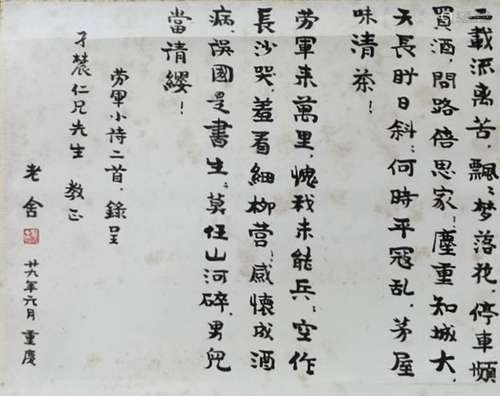 二載流離苦,飄〻夢落花,停車頻
買酒,問路倍思家!塵重知城大,
天長盼日斜;何時平寇亂,茅屋
味清茶!
勞軍来萬里,愧我未能兵;空作
長沙哭,羞看細柳營;感懷成酒
病,誤國是書生;莫任山河碎,男兒
當請纓!
勞軍小詩二首,錄呈
仁兄先生 教正
老舍
廿九年六月 重慶